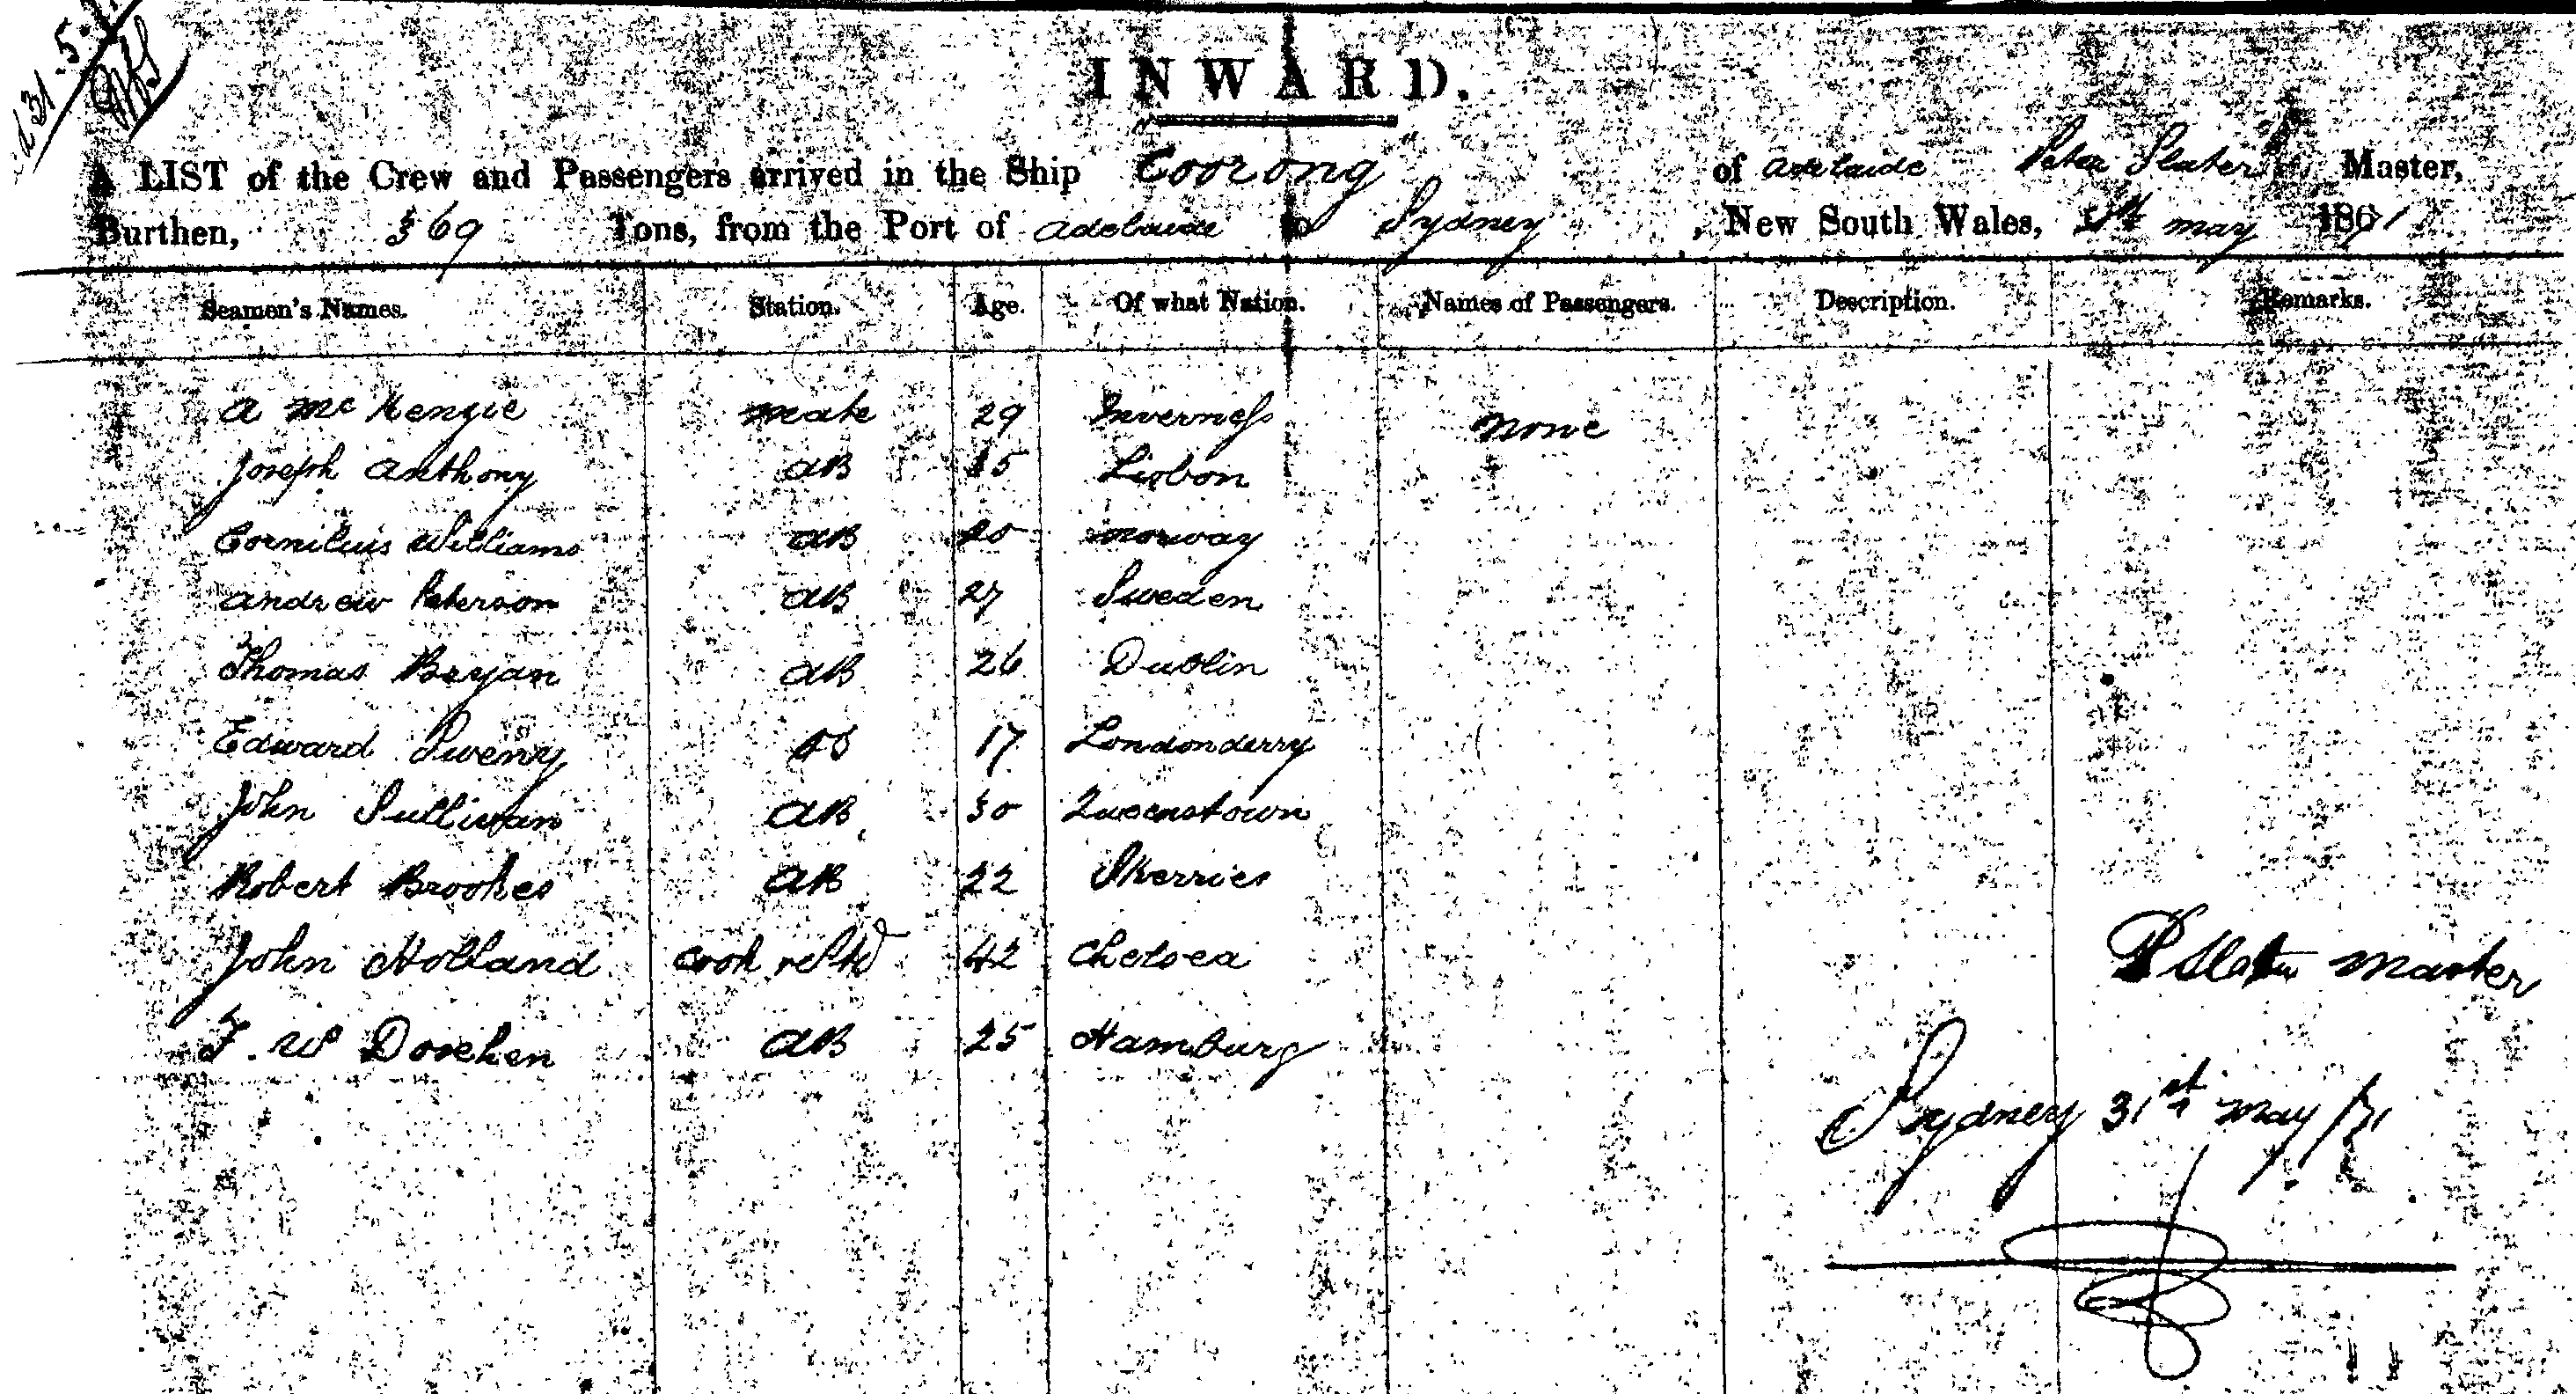 31.5.
INWARD.
A LIST of the Crew and Passengers arrived in the Ship "Coorong" of Adelaide Peter Slater, Master,
Burthen, 369 Tons, from the Port of Adelaide to Sydney, New South Wales, May 1871
Seamen's Names. Station. Age. Of what Nation. Names of Passengers. Description. Remarks.
A McKenzie mate 29 Inverness None
Joseph Anthony AB 15 Lisbon
Corniluis Williams AB 20 Norway
Andrew Peterson AB 27 Sweden
Thomas Bryan AB 26 Dublin
Edward Sweny 17 Londonderry
John Sullivan AB 30 Queenstown
Robert Brookes AB 22 Skerries
John Holland Cook 42 Chelsea
P Slater Master
F. W Doschen AB 25 Hamburg
Sydney 31st May /71